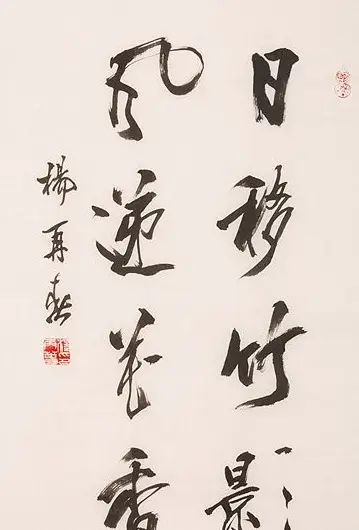 日移竹影
風递花香
楊再春